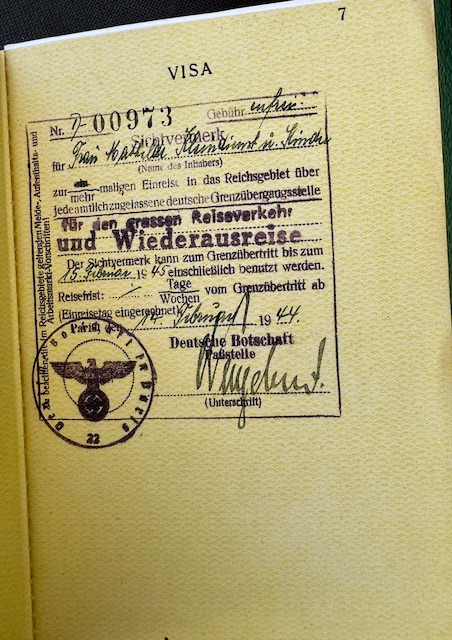 7
VISA
Nr. 00973 Gebühr
Sichtvermerk
für Frau Mathilde u. Kinder
(Name des Inhabers)
zur ein-maligen Einreise in das Reichsgebiet über
mehr
jede amtlich zugelassene deutsche Grenzübergangsstelle
für den grossen Reiseverkehr
und Wiederausreise
Der Sichtvermerk kann zum Grenzübertritt bis zum
13. Februar 1945 einschließlich benutzt werden.
Reisefrist: Tage
Wochen vom Grenzübertritt ab
(Einreisetag eingerechnet)
Paris, den 14. Februar 1944.
Deutsche Botschaft
Paßstelle
(Unterschrift)
Die zu beachten im Reichsgebiete geltenden Melde-, Aufenthalts- und
Arbeitsmarkt-Vorschriften!
Deutsche Botschaft in Paris
22